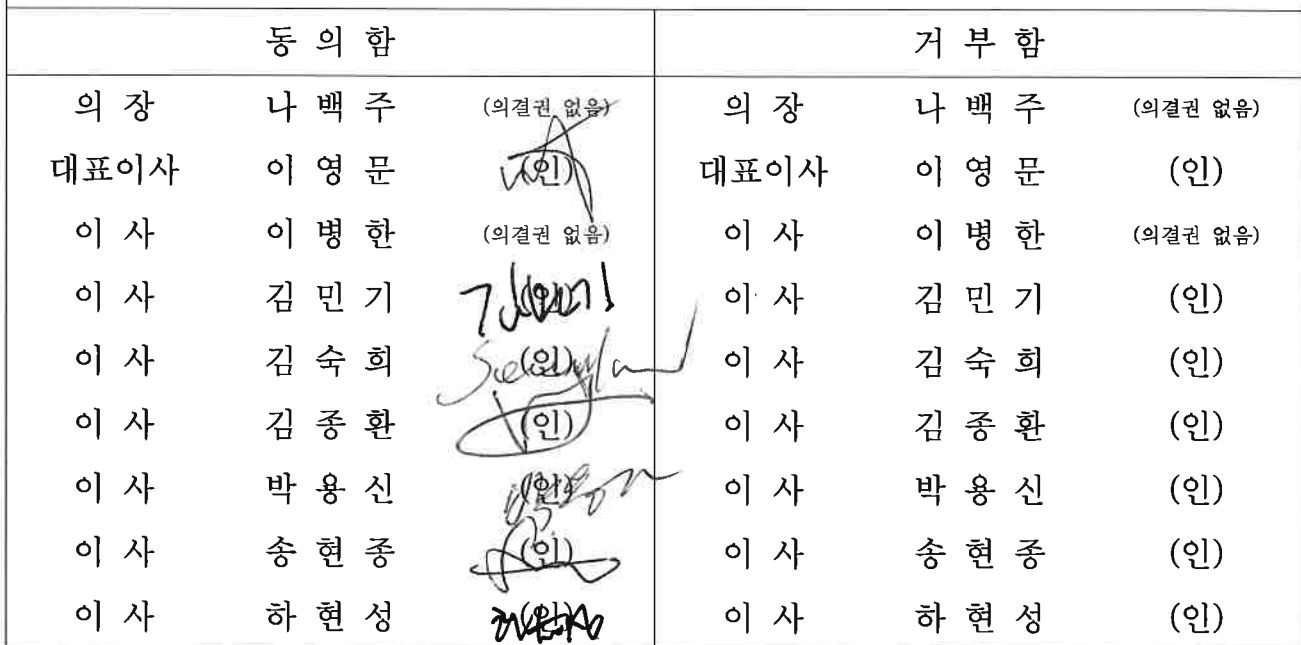 동 의 함 거 부 함
의 장 나 백 주 (의결권 없음) 의 장 나 백 주 (의결권 없음)
대표이사 이 영 문 (인) 대표이사 이 영 문 (인)
이 사 이 병 한 (의결권 없음) 이 사 이 병 한 (의결권 없음)
이 사 김 민 기 (인) 이 사 김 민 기 (인)
이 사 김 숙 희 (인) 이 사 김 숙 희 (인)
이 사 김 종 환 (인) 이 사 김 종 환 (인)
이 사 박 용 신 (인) 이 사 박 용 신 (인)
이 사 송 현 종 (인) 이 사 송 현 종 (인)
이 사 하 현 성 (인) 이 사 하 현 성 (인)